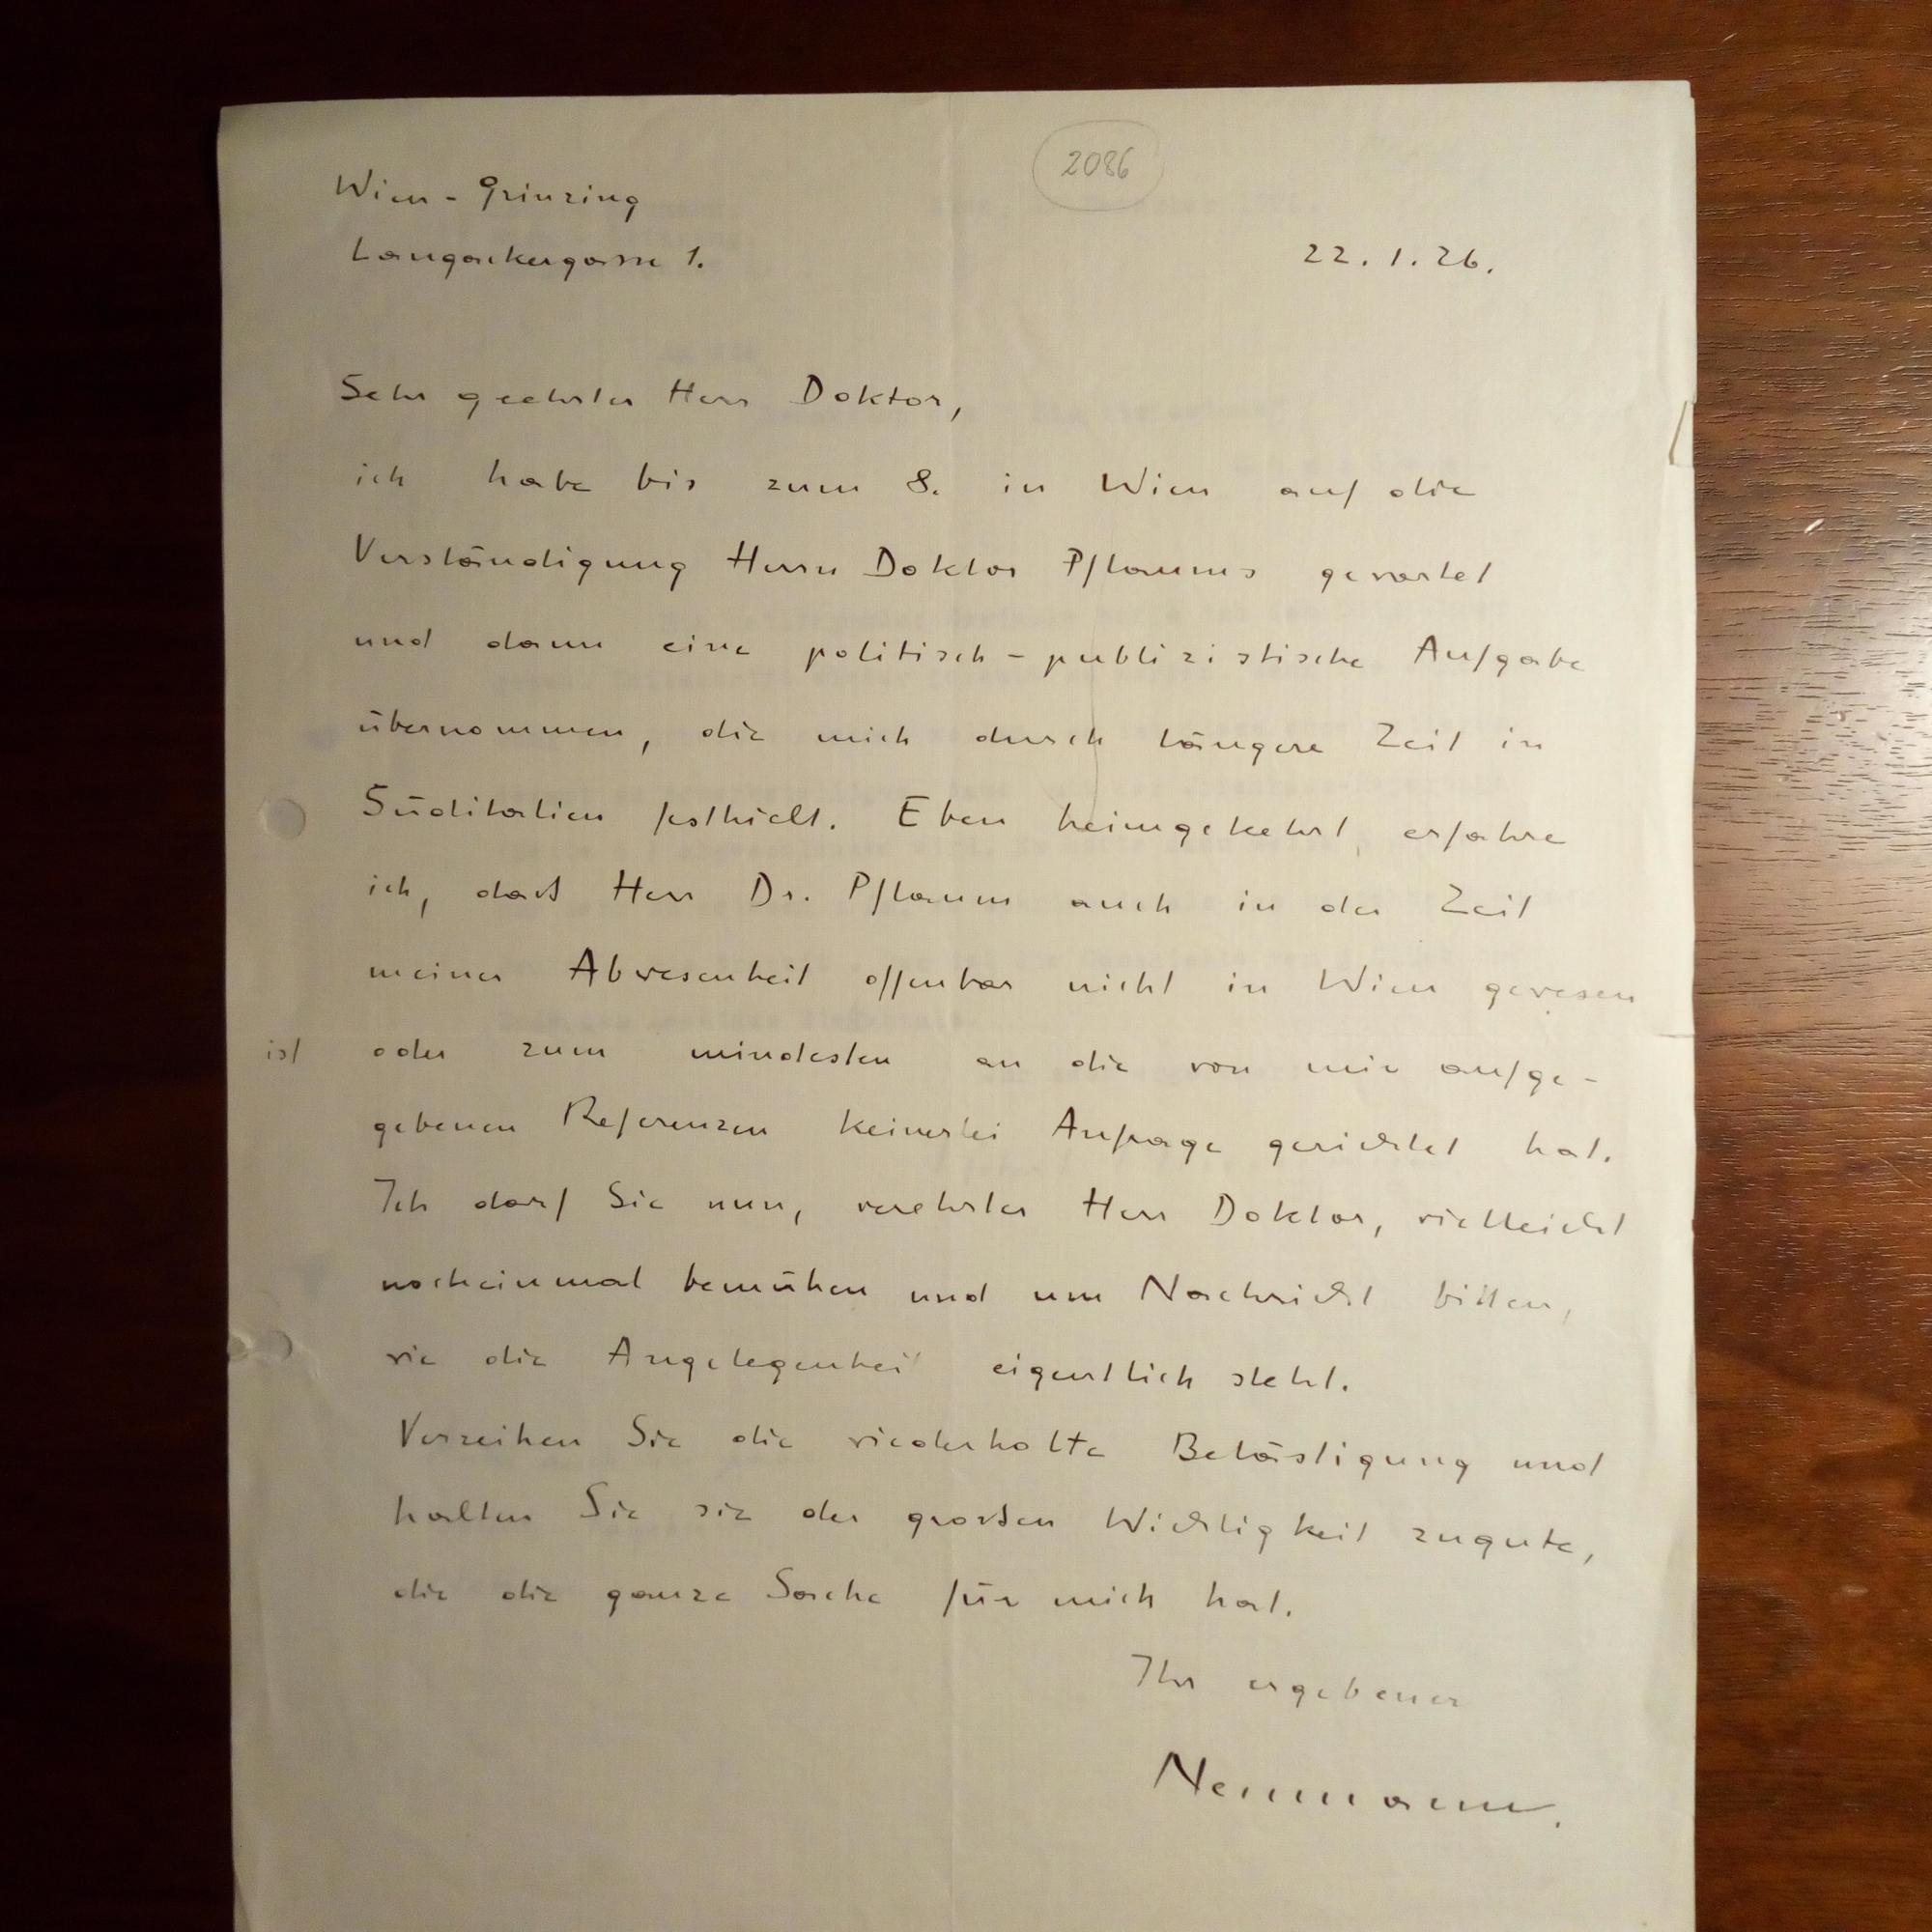 2086
Wien - Grinzing
Langackergasse 1.
22. 1. 26.
Sehr geehrter Herr Doktor,
ich habe bis zum 8. in Wien auf die
Verständigung Herrn Doktor Pflaums gewartet
und dann eine politisch - publizistische Aufgabe
übernommen, die mich durch längere Zeit in
Süditalien festhielt. Eben heimgekehrt, erfahre
ich, daß Herr Dr. Pflaum auch in der Zeit
meiner Abwesenheit offenbar nicht in Wien gewesen
ist oder zum mindesten an die von mir aufge-
gebenen Referenzen keinerlei Anfrage gerichtet hat.
Ich darf Sie nun, verehrter Herr Doktor, vielleicht
nocheinmal bemühen und um Nachricht bitten,
wie die Angelegenheit eigentlich steht.
Verzeihen Sie die wiederholte Belästigung und
halten Sie sie der großen Wichtigkeit zugute,
die die ganze Sache für mich hat.
Ihr ergebener
Neumann.